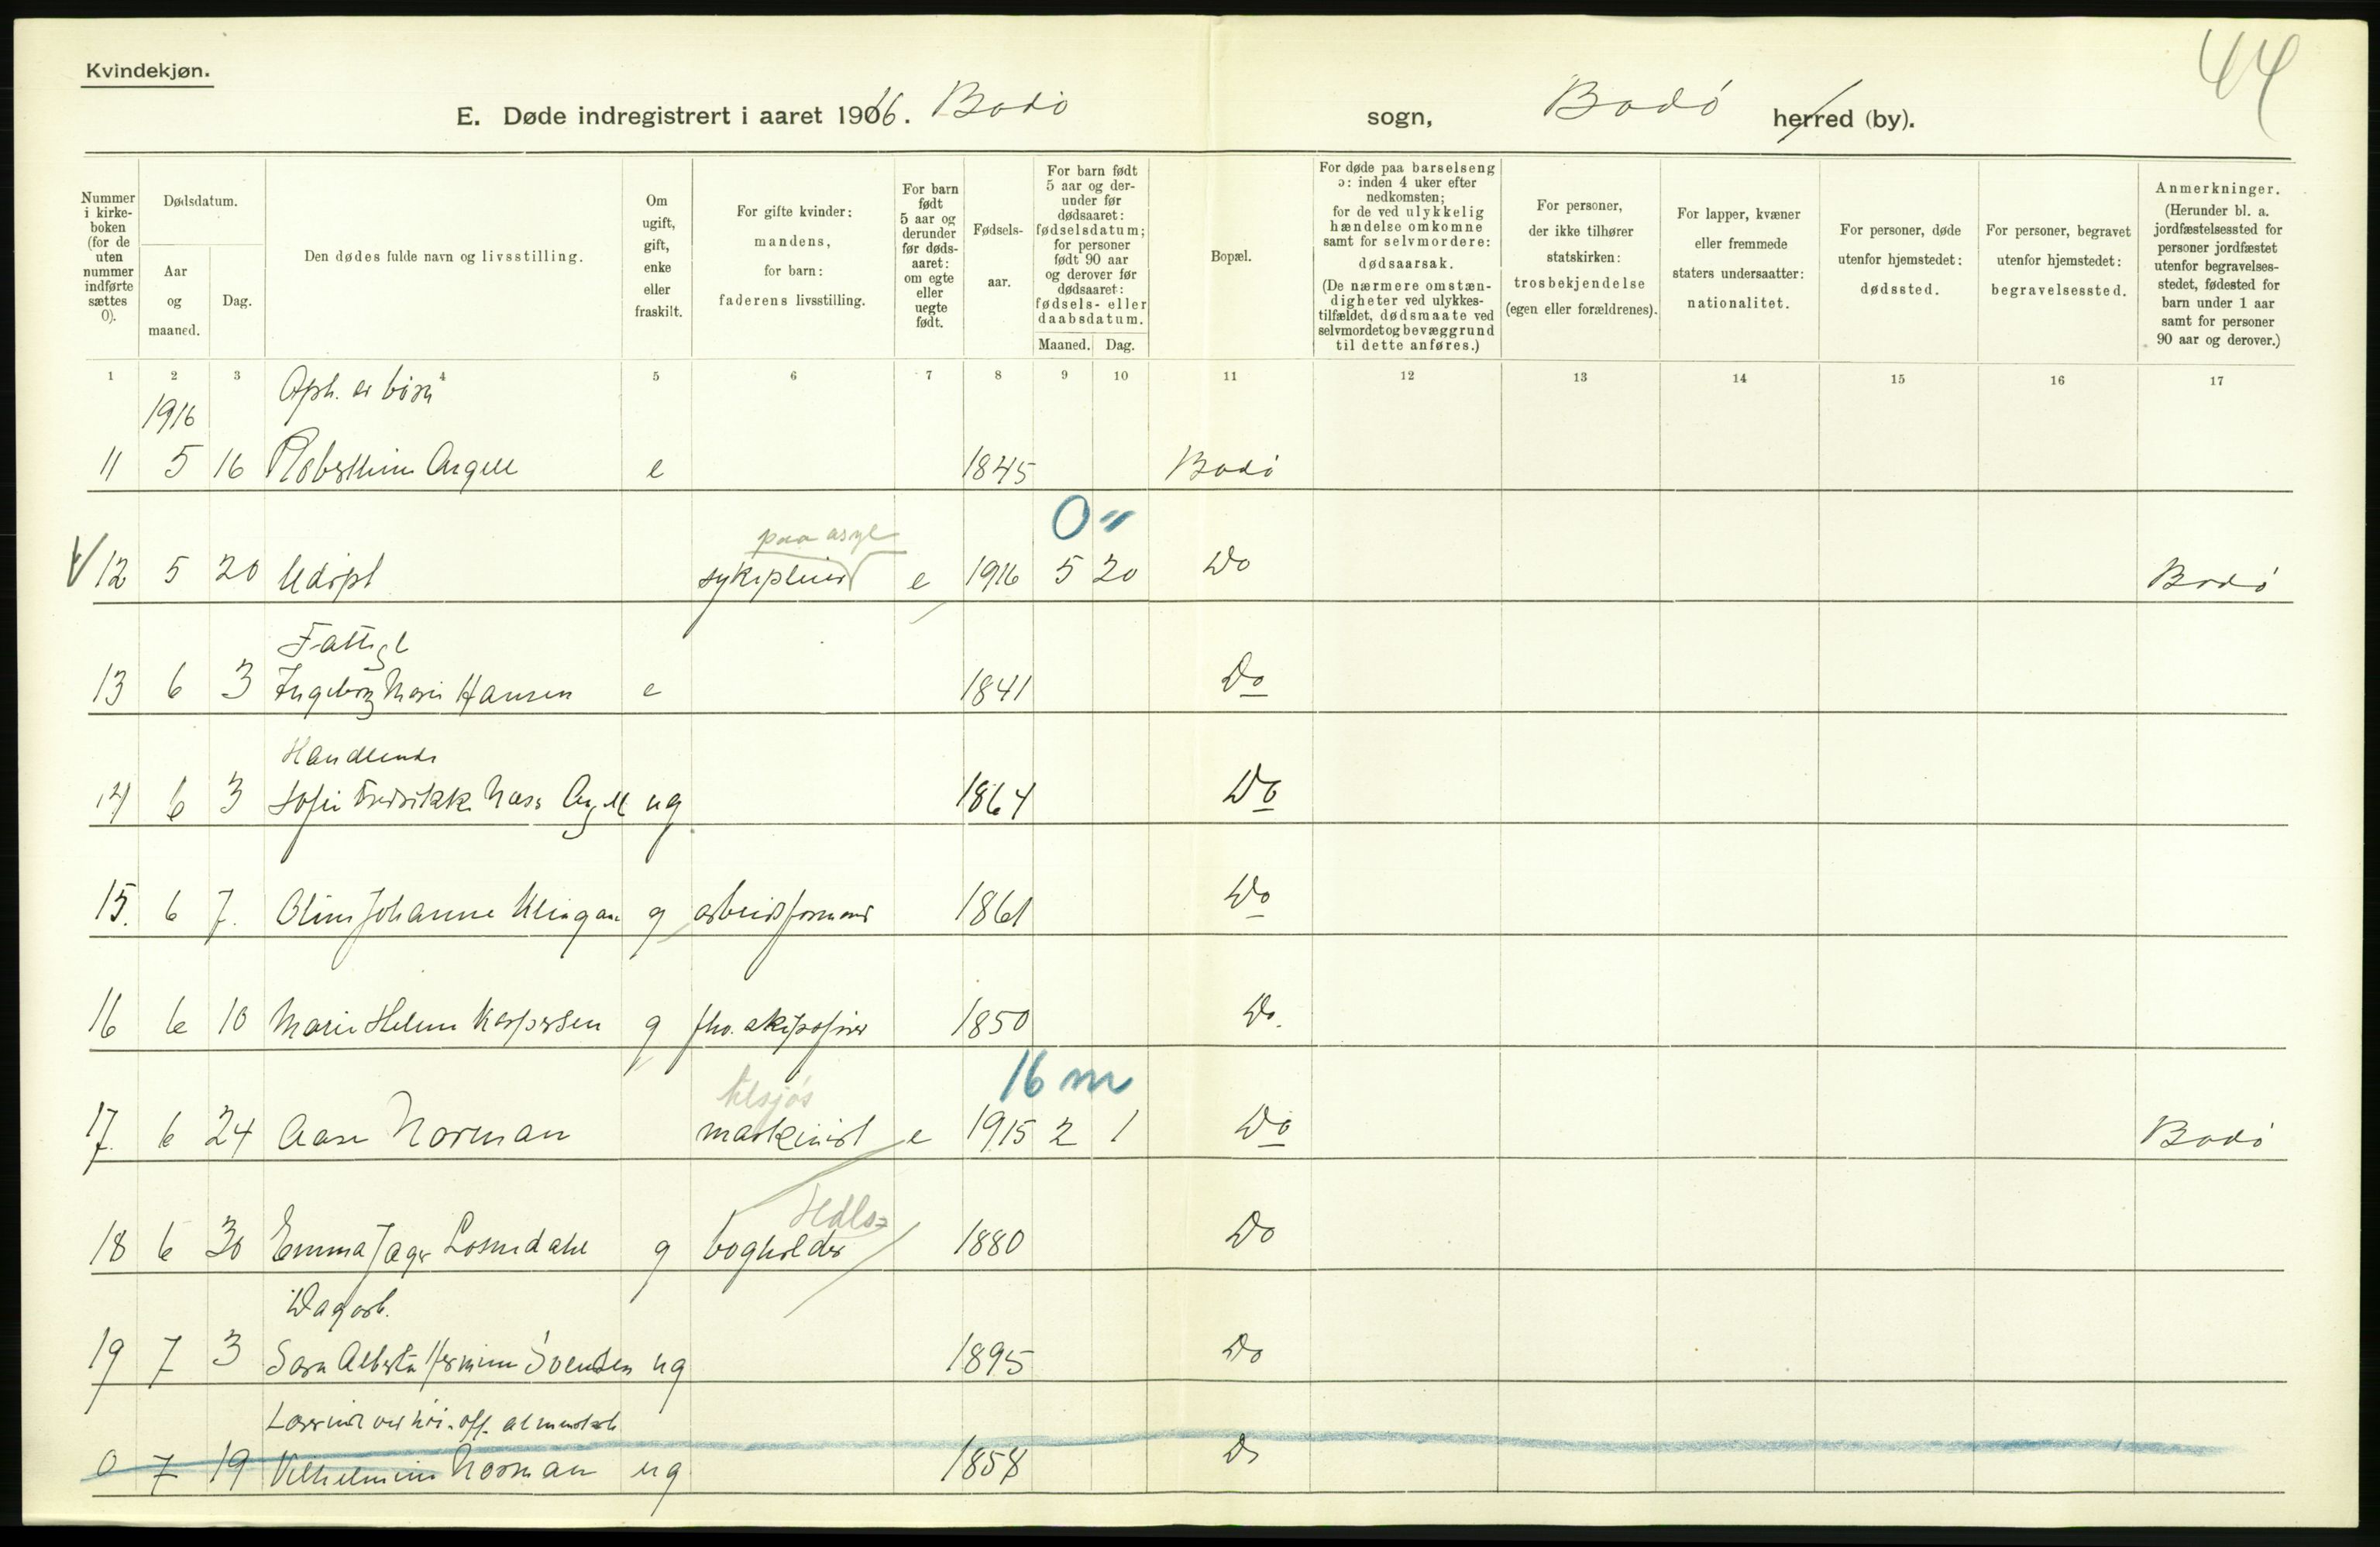 Kvindekjøn.
44
E. Døde indregistrert i aaret 1916. Bodø sogn, Bodø herred (by).
Nummer i kirke-boken (for de uten nummer indførte sættes 0).
Dødsdatum.
Aar og maaned.
Dag.
Den dødes fulde navn og livsstilling.
Om ugift, gift, enke eller fraskilt.
For gifte kvinder: mandens, for barn: faderens livsstilling.
For barn født 5 aar og derunder før døds-aaret: om egte eller uegte født.
Fødsels-aar.
For barn født 5 aar og der-under før dødsaaret: fødselsdatum; for personer født 90 aar og derover før dødsaaret: fødsels- eller daabsdatum.
Maaned. Dag.
Bopæl.
For døde paa barselseng ɔ: inden 4 uker efter nedkomsten; for de ved ulykkelig hændelse omkomne samt for selvmordere: dødsaarsak. (De nærmere omstæn-digheter ved ulykkes-tilfældet, dødsmaate ved selvmordet og bevæggrund til dette anføres.)
For personer, der ikke tilhører statskirken: trosbekjendelse (egen eller forældrenes).
For lapper, kvæner eller fremmede staters undersaatter: nationalitet.
For personer, døde utenfor hjemstedet: dødssted.
For personer, begravet utenfor hjemstedet: begravelsessted.
Anmerkninger. (Herunder bl. a. jordfæstelsessted for personer jordfæstet utenfor begravelses-stedet, fødested for barn under 1 aar samt for personer 90 aar og derover.)
1 2 3 4 5 6 7 8 9 10 11 12 13 14 15 16 17
1916
11 5 16 Angell e 1845 Bodø
0 "
paa asyl
12 5 20 Udøpt e 1916 5 20 Do Bodø
Fattigl
13 6 3 Ingeborg Marie Hansen e 1841 Do
Handlende
14 6 3 Sofie Fredrikke Angell ug 1864 Do
15. 6 7. Johanne g arbeidsformand 1861 Do
16 6 10 Marie Helene Kaspersen g fhv. skipsfører 1850 Do.
16 m
tilsjøs
17. 6 24 Aase Norman maskinist e 1915 2 1 Do Bodø
Hdls-
18 6 30 Emma Jæger g bogholder 1880 Do
Dagarb.
19 7 3 Sara Alberta Hermine Svendsen ug 1895 Do
0 7 19 Vilhelmine Norman ug 1858 Do